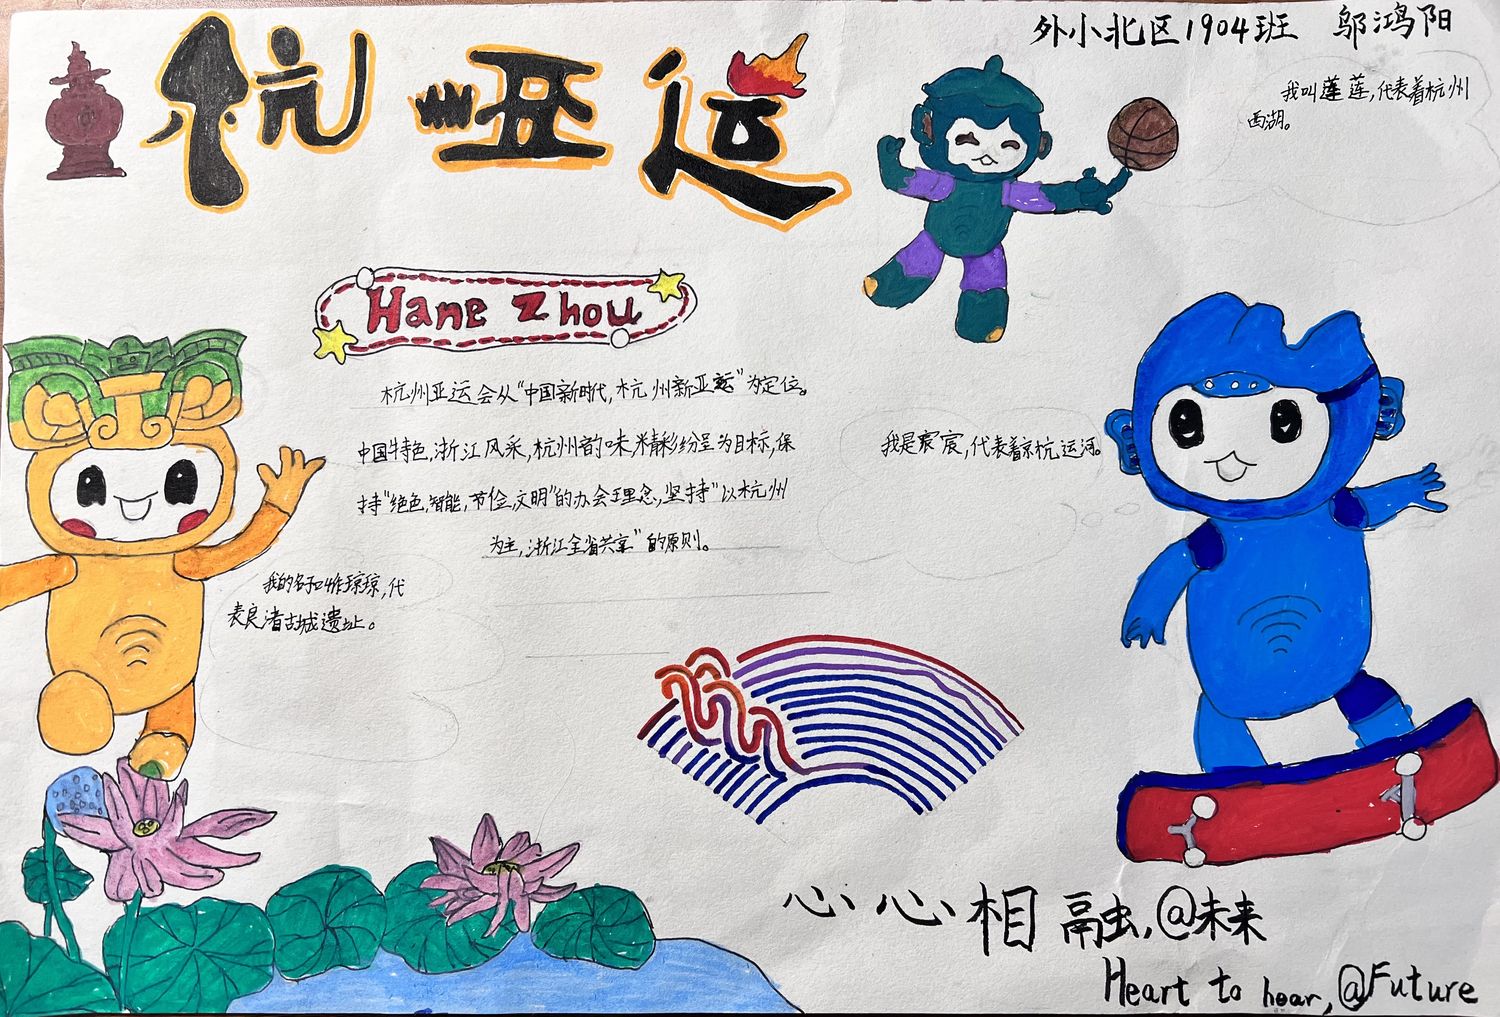 外小北区1904班 邬鸿阳
杭州亚运
我叫莲莲,代表着杭州
西湖。
Hang Zhou
杭州亚运会从“中国新时代,杭州新亚运”为定位。
中国特色,浙江风采,杭州韵味,精彩纷呈为目标,保
持“绝色,智能,节俭,文明”的办会理念,坚持“以杭州
为主,浙江全省共享”的原则。
我是宸宸,代表着京杭运河。
我的名字叫作琮琮,代
表良渚古城遗址。
心心相融,@未来
Heart to hear,@Future